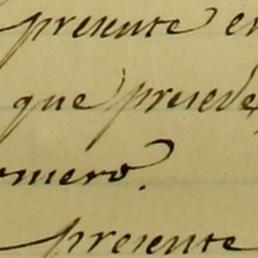 presente en
que precede
omero.
presente